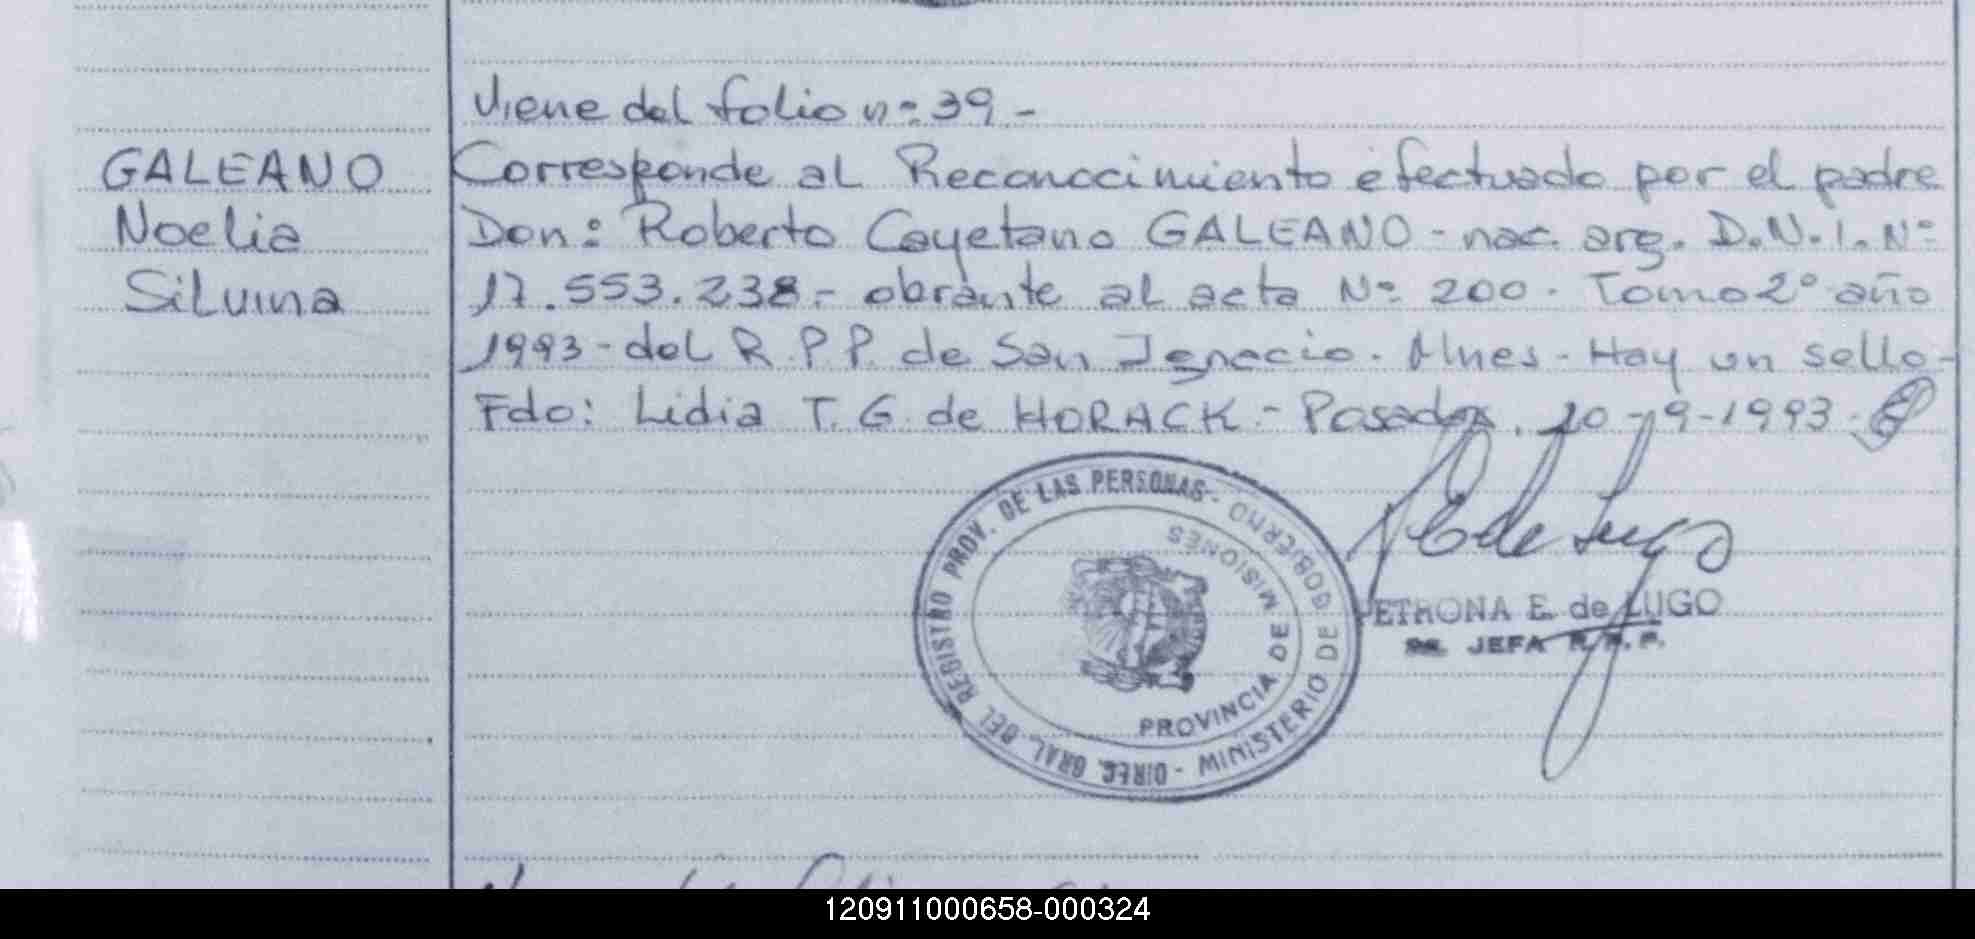 Viene del folio nº 39 -
GALEANO
Noelia
Silvina
Corresponde al Reconocimiento efectuado por el padre
Don: Roberto Cayetano GALEANO - nac. arg. D.N.I. Nº
17.553.238.- obrante al acta Nº 200. Tomo 2º año
1993 - del R.P.P. de San Ignacio. Mnes - Hay un sello -
Fdo: Lidia T. G. de HORACK - Posadas, 20-9-1993.
DIREC. GRAL. DEL REGISTRO PROV. DE LAS PERSONAS - MINISTERIO DE GOBIERNO
PROVINCIA DE MISIONES
PETRONA E. de LUGO
JEFA R.P.P.
120911000658-000324